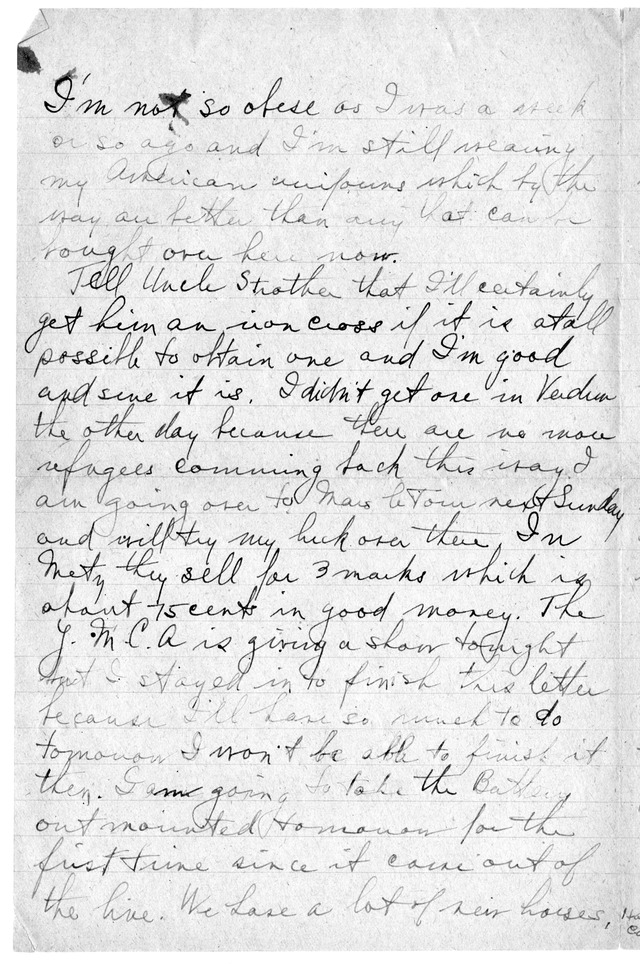 I'm not so obese as I was a week
or so ago and I'm still wearing
my American uniforms which by the
way are better than any that can be
bought over here now.
Tell Uncle Strother that I'll certainly
get him an iron cross if it is atall
possible to obtain one and I'm good
and sure it is. I didn't get one in Verdun
the other day because there are no more
refugees comming back this way I
am going over to Mars la Tour next Sunday
and will try my luck over there. In
Metz they sell for 3 marks which is
about 75 cents in good money. The
Y.M.C.A is giving a show tonight
but I stayed in to finish this letter
because I'll have so much to do
tomorrow I won't be able to finish it
then. I am going to take the Battery
out mounted tomorrow for the
first time since it came out of
the line. We have a lot of new horses,